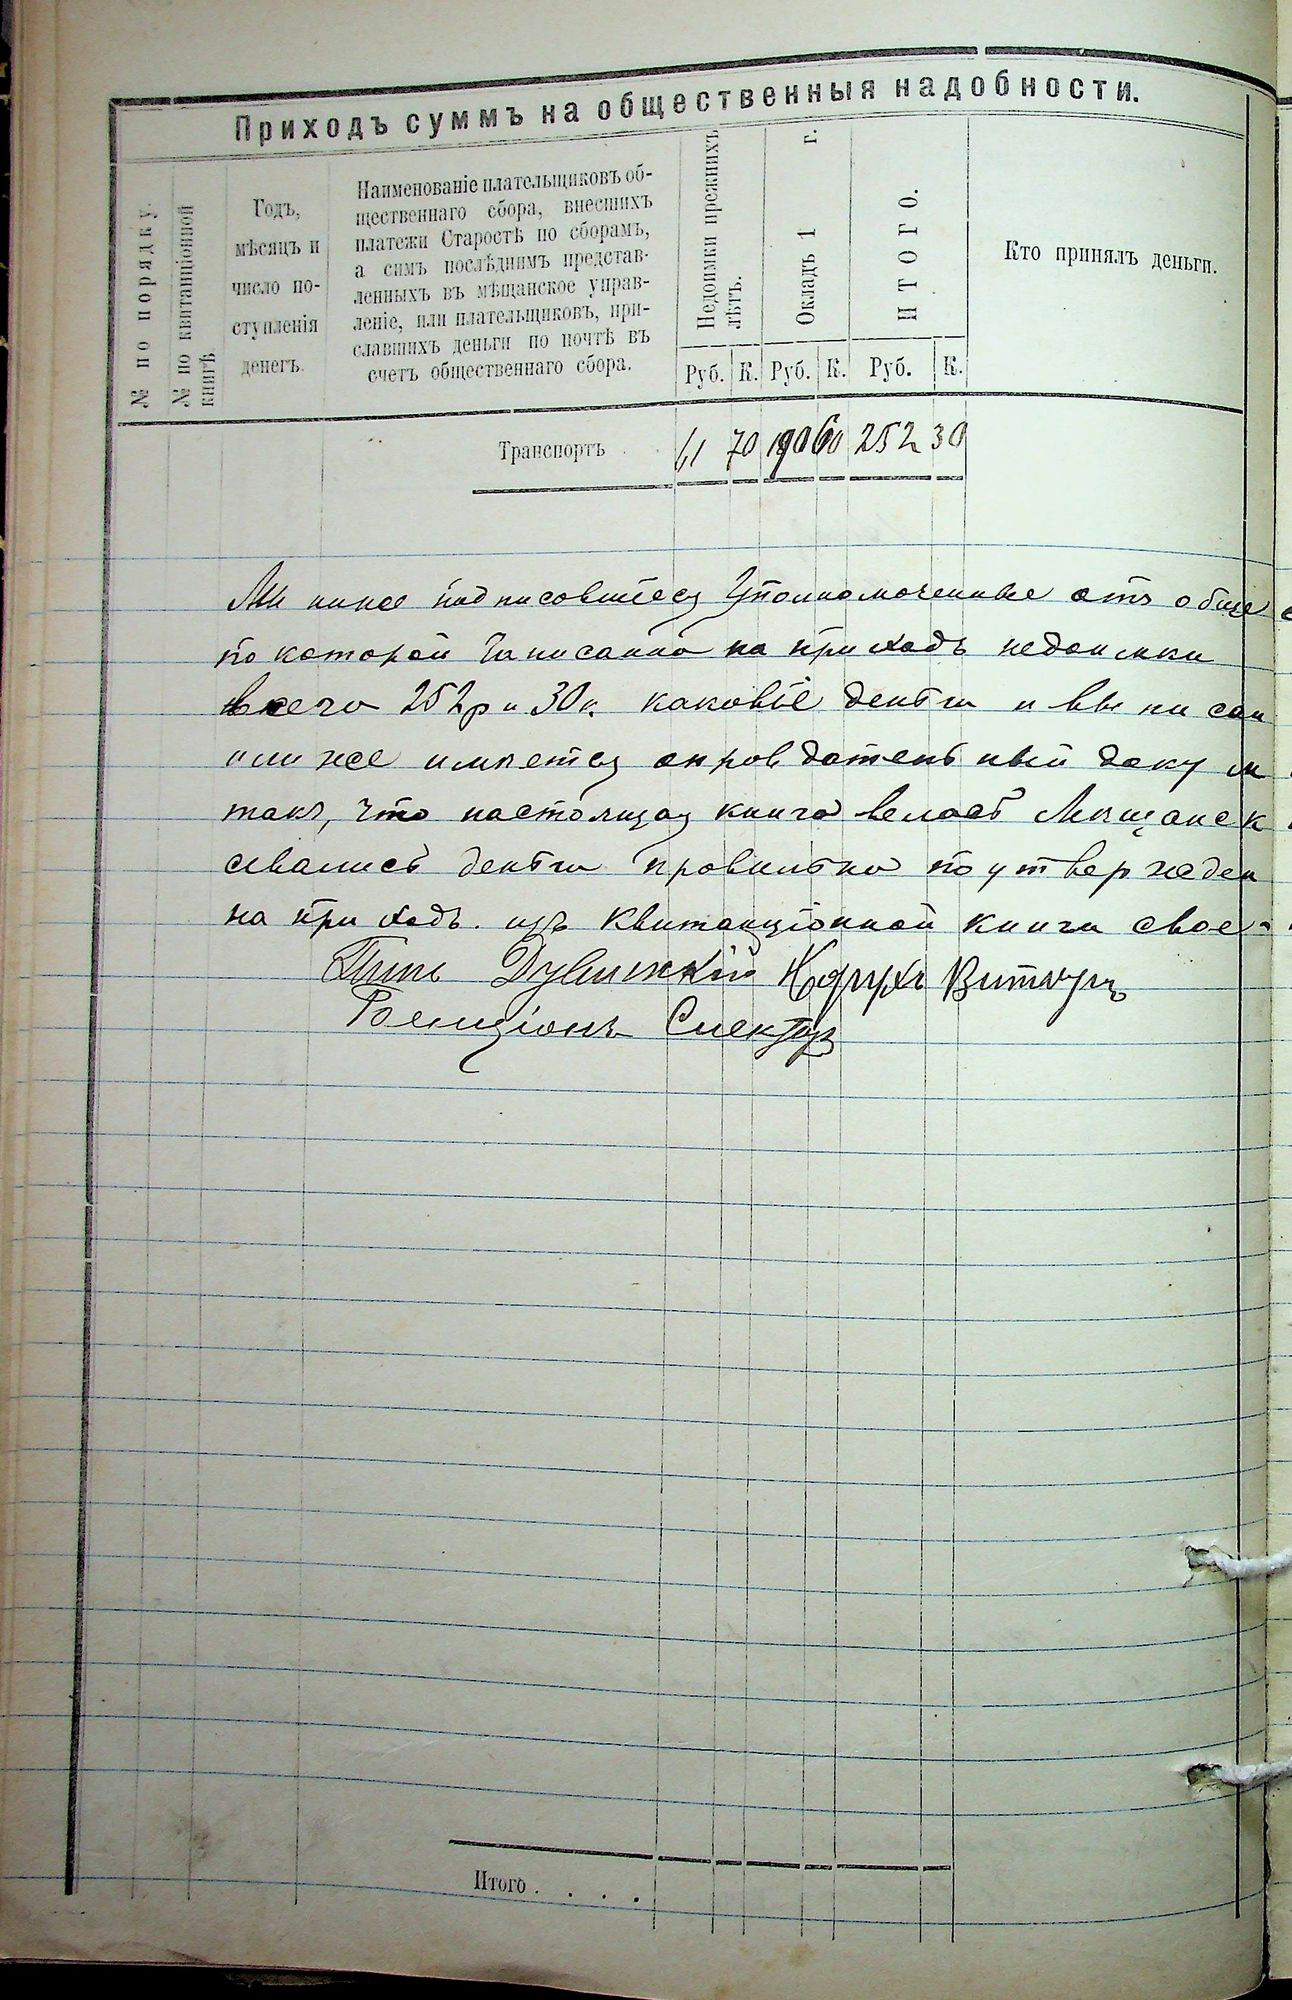 Приходъ суммъ на общественныя надобности.
№ по порядку.
№ по квитанціонной
книгѣ.
Годъ,
мѣсяцъ и
число по-
ступленія
денегъ.
Наименованіе плательщиковъ об-
щественнаго сбора, внесшихъ
платежи Старостѣ по сборамъ,
а симъ послѣднимъ представ-
ленныхъ въ мѣщанское управ-
леніе, или плательщиковъ, при-
славшихъ деньги по почтѣ въ
счетъ общественнаго сбора.
Недоимки прежнихъ
лѣтъ.
Окладъ 1 г.
ИТОГО.
Кто принялъ деньги.
Руб. К. Руб. К. Руб. К.
Транспортъ 61 70 190 60 252 30
Ми ниже подписовшіеся Уполномоченные отъ обще
по которой записанно на приходъ недоимки
всего 252 р и 30 к. каковые деньги и выписан
или же имѣется оправдательный докум
такъ, что настоящая книга велась Мѣщанск
сивались деньги правильно по утвержден
на приходъ. изъ квитанціонной книги свое-
Дувинскій
Спекторъ
Итого . . . .